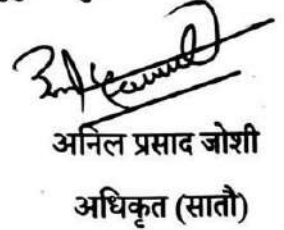 अनिल प्रसाद जोशी
अधिकृत (सातौ)